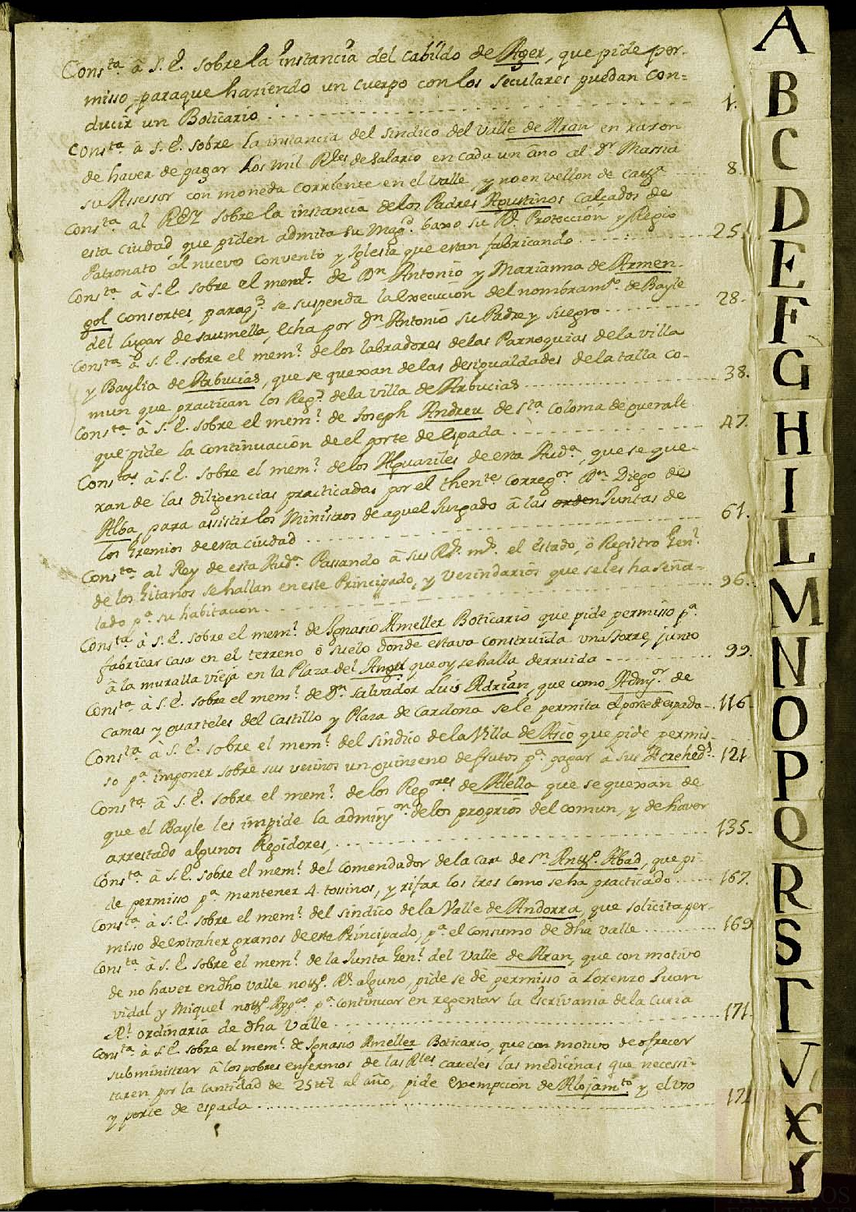 Consta â S. E. sobre la instancia del Cabildo de Ager, que pide per-
misso, paraque haziendo un cuerpo con los seculares puedan con=
ducir un Boticario 1.
Consta â S. E. sobre la instancia del sindico del Valle de Aran en razon
de haver de pagar los mil Rles de salario en cada un año al Dr Massia
su Assessor con moneda corriente en el valle, y no en vellon de 8.
Consta al REY sobre la instancia de los Padres Agustinos calzados de
esta ciudad que piden admita su Magd baxo su Rl Proteccion y Regio
Patronato al nuevo Convento y Iglesia que estan fabricando 25.
Consta â S. E. sobre el meml de Dn Antonio y Marianna de Armen-
gol consortes, paraq se suspenda la execucion del nombramto de Bayle
del lugar de saumella, echa por Dn Antonio su Padre y suegro 28.
Consta â S. E. sobre el meml de los labradores de las Parroquias de la villa
y Baylia de Arbucias, que se quexan de las desigualdades de la talla co-
mun que practican los Regs de la villa de Arbucias 38.
Consta â S. E. sobre el meml de Joseph Andreu de Sta Coloma de queralt
que pide la continuacion de el porte de espada 47.
Consta â S. E. sobre el meml de los Alguaziles de esta Auda, que se que-
xan de las diligencias practicadas por el thente Corregor Dn Diego de
Alba, para assistir los Ministros de aquel Juzgado â las orden Juntas de
los Gremios de esta ciudad 61.
Consta al Rey de esta Auda Passando â sus Rs ms el estado, ô Registro Genl
de los Gitanos se hallan en este Principado, y vezindarios que se les ha seña-
lado pa su habitacion 96.
Consta â S. E. sobre el meml de Ignasio Ameller Boticario que pide permisso pa
fabricar casa en el terreno ô suelo donde estava construida una torre, junto
â la muralla vieja en la Plaza del Angel que oy se halla derruida 99.
Consta â S. E. sobre el meml de Dn Salvador Luis Adrian, que como Admor de
camas y quarteles del Castillo y Plaza de Cardona se le permita el porte de espada 116.
Consta â S. E. sobre el meml del sindico de la Villa de Asco que pide permis-
so pa imponer sobre sus vezinos un quinzeno de frutos pa pagar â sus Acreheds 121
Consta â S. E. sobre el meml de los Regores de Alella que se quexan de
que el Bayle les impide la adminon de los proprios del comun, y de haver
arrestado algunos Regidores, 135.
Consta â S. E. sobre el meml del Comendador de la casa de Sn Anto Abad, que pi-
de permisso pa mantener 4. tossinos, y rifar los tres como se ha practicado 167.
Consta â S. E. sobre el meml del sindico de la Valle de Andorra, que solicita per-
misso de extraher granos de este Principado, pa el consumo de dha valle 169
Consta â S. E. sobre el meml de la Junta Genl del Valle de Aran, que con motivo
de no haver en dho valle noto Rl alguno, pide se dè permisso â Lorenzo Juan
vidal y Miquel pa continuar en regentar la Escrivania de la Curia
Rl ordinaria de dha Valle 171
Consta â S. E. sobre el meml de Ignasio Ameller Boticario, que con motivo de ofrecer
subministrar â los pobres enfermos de las Rles carceles las medicinas que necessi-
taren por la cantidad de 25 al año, pide exempcion de Alojamto y el uso
y porte de espada
A
B
C
D
E
F
G
H
I
L
M
N
O
P
Q
R
S
T
V
X
Y